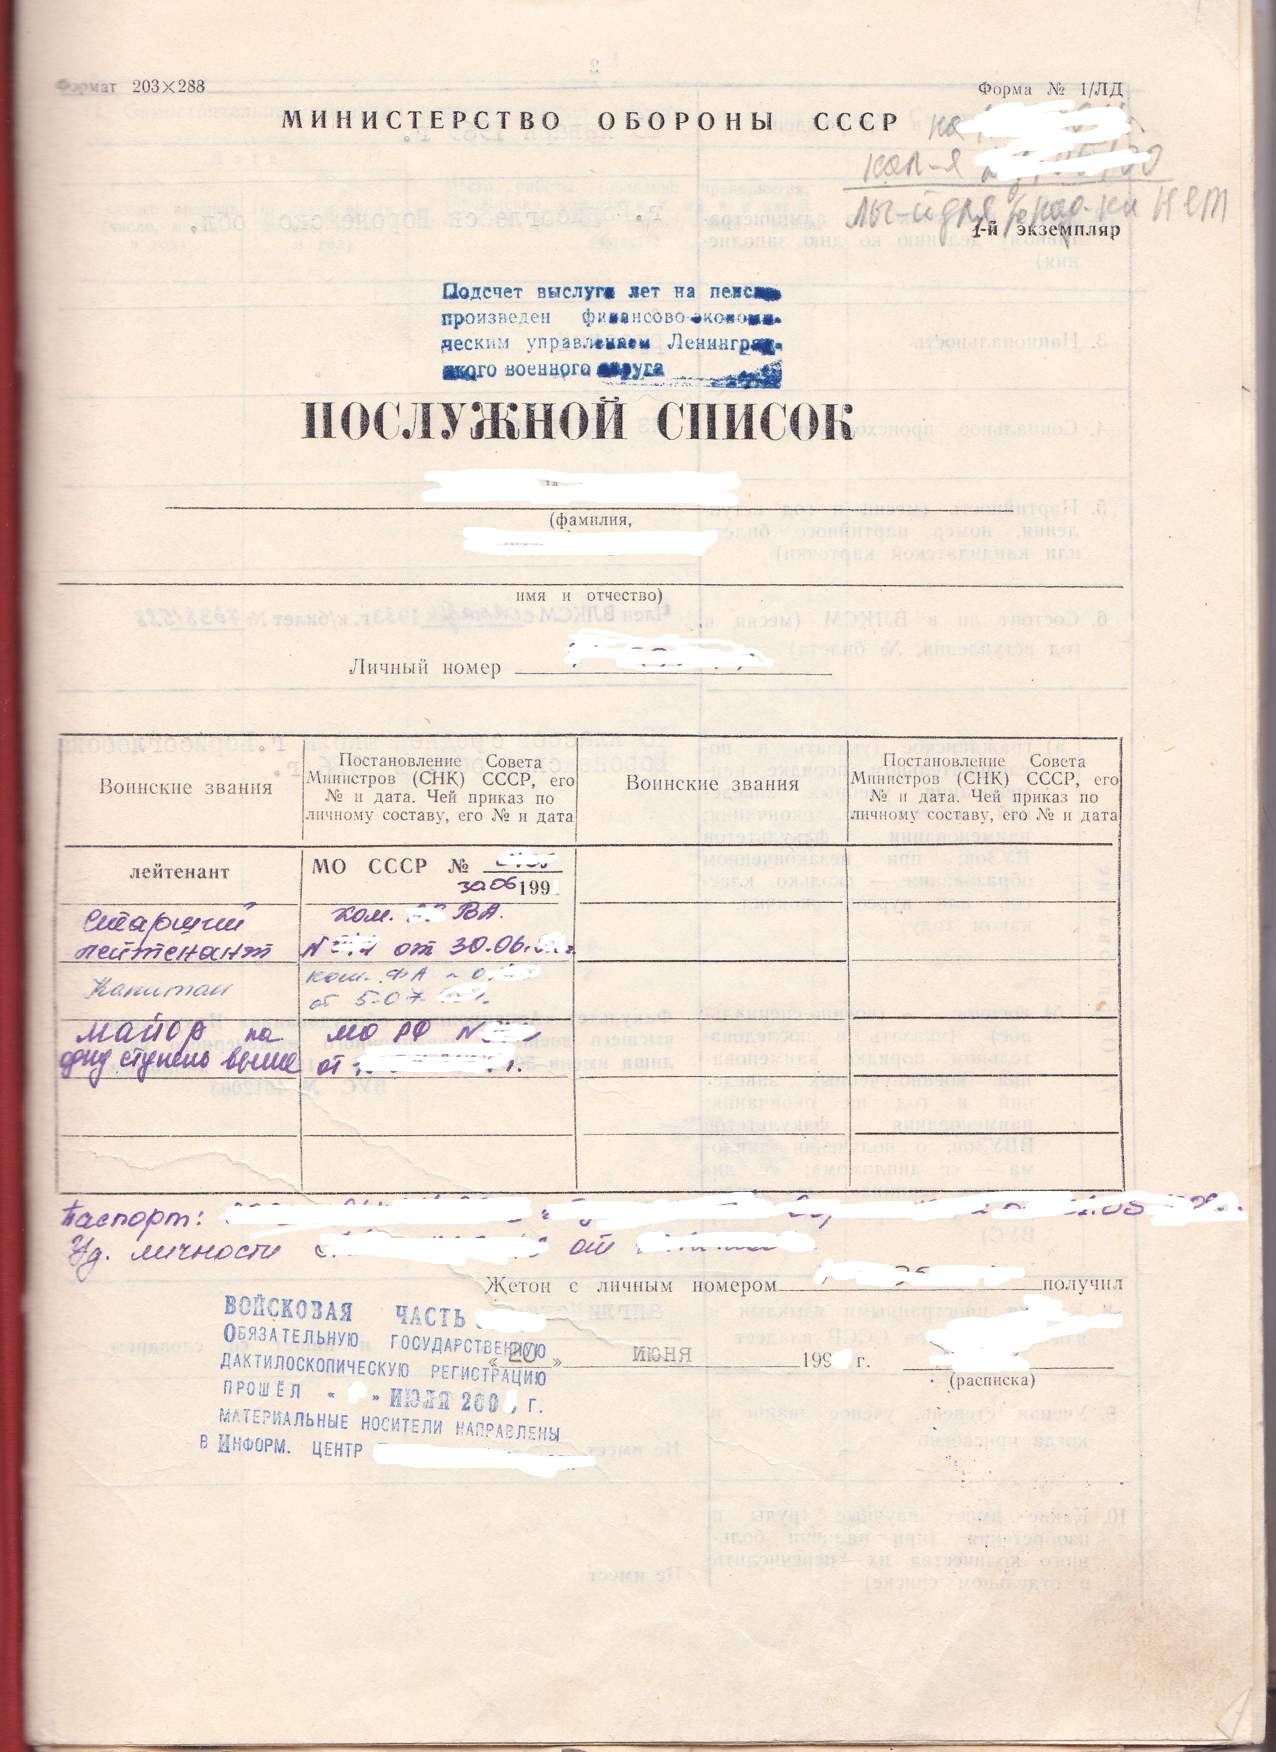 Формат 203×288
Форма № 1/ЛД
МИНИСТЕРСТВО ОБОРОНЫ СССР
на
кал-я
нет
1-й экземпляр
Подсчет выслуги лет на пенсию
произведен финансово-экономи-
ческим управлением Ленинград-
ского военного округа
ПОСЛУЖНОЙ СПИСОК
(фамилия,
имя и отчество)
Личный номер
Воинские звания
Постановление Совета
Министров (СНК) СССР, его
№ и дата. Чей приказ по
личному составу, его № и дата
Воинские звания
Постановление Совета
Министров (СНК) СССР, его
№ и дата. Чей приказ по
личному составу, его № и дата
лейтенант
МО СССР №
30.06 199
Старший
лейтенант
ком. ВА.
№ от 30.06.
Капитан
ком. ФА
от 5.07
майор на
одну ступень выше
МО РФ №
от г.
Паспорт:
Уд. личности от
Жетон с личным номером получил
« 20 » ИЮНЯ 199 г.
(расписка)
ВОЙСКОВАЯ ЧАСТЬ
ОБЯЗАТЕЛЬНУЮ ГОСУДАРСТВЕННУЮ
ДАКТИЛОСКОПИЧЕСКУЮ РЕГИСТРАЦИЮ
ПРОШЁЛ « » ИЮЛЯ 200 г.
МАТЕРИАЛЬНЫЕ НОСИТЕЛИ НАПРАВЛЕНЫ
В ИНФОРМ. ЦЕНТР